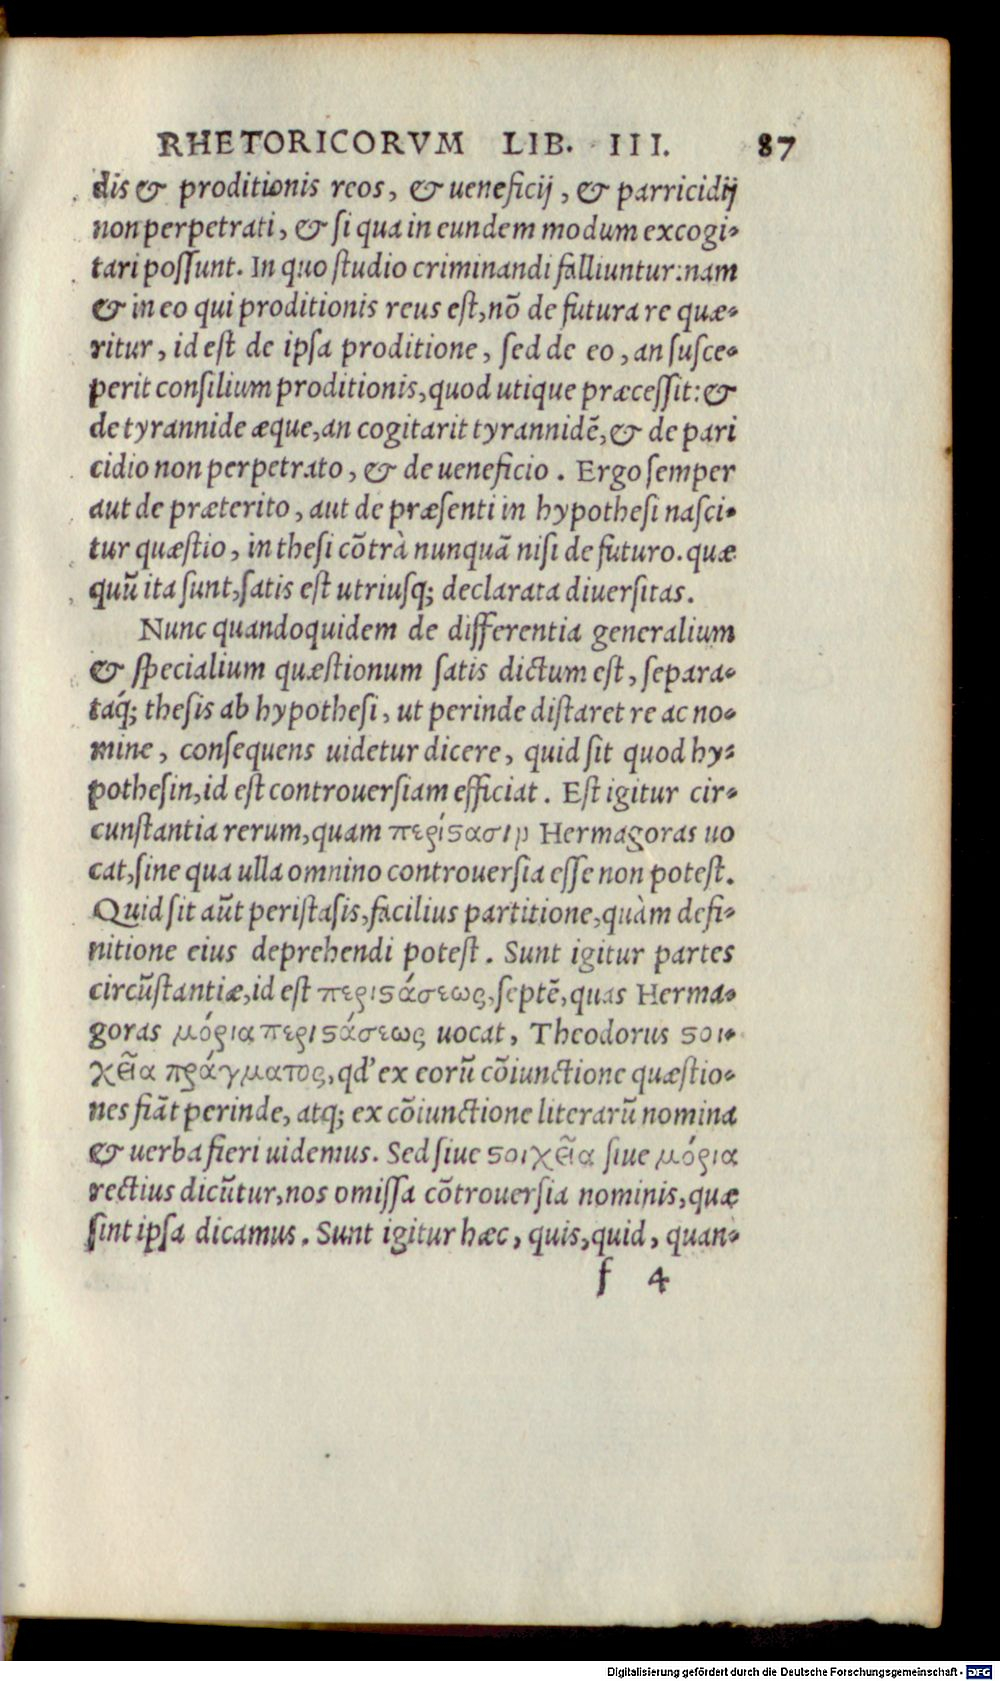 RHETORICORVM LIB. III. 87
dis & proditionis reos, & ueneficij, & parricidij
non perpetrati, & si qua in eundem modum excogi-
tari possunt. In quo studio criminandi falliuntur: nam
& in eo qui proditionis reus est, nō de futura re quæ-
ritur, id est de ipsa proditione, sed de eo, an susce-
perit consilium proditionis, quod utique præcessit: &
de tyrannide æque, an cogitarit tyrannidē, & de pari
cidio non perpetrato, & de ueneficio. Ergo semper
aut de præterito, aut de præsenti in hypothesi nasci-
tur quæstio, in thesi cōtrà nunquā nisi de futuro. quæ
quū ita sunt, satis est utriusq; declarata diuersitas.
Nunc quandoquidem de differentia generalium
& specialium quæstionum satis dictum est, separa-
táq; thesis ab hypothesi, ut perinde distaret re ac no-
mine, consequens uidetur dicere, quid sit quod hy-
pothesin, id est controuersiam efficiat. Est igitur cir-
cunstantia rerum, quam περίϛασιν Hermagoras uo
cat, sine qua ulla omnino controuersia esse non potest.
Quid sit aūt peristasis, facilius partitione, quàm defi-
nitione eius deprehendi potest. Sunt igitur partes
circūstantiæ, id est περιϛάσεως, septē, quas Herma-
goras μόρια περιϛάσεως uocat, Theodorus ϛοι-
χεῖα πράγματος, qd' ex eorū cōiunctione quæstio-
nes fiāt perinde, atq; ex cōiunctione literarū nomina
& uerba fieri uidemus. Sed siue ϛοιχεῖα siue μόρια
rectius dicūtur, nos omissa cōtrouersia nominis, quæ
sint ipsa dicamus. Sunt igitur hæc, quis, quid, quan-
f 4
Digitalisierung gefördert durch die Deutsche Forschungsgemeinschaft - DFG